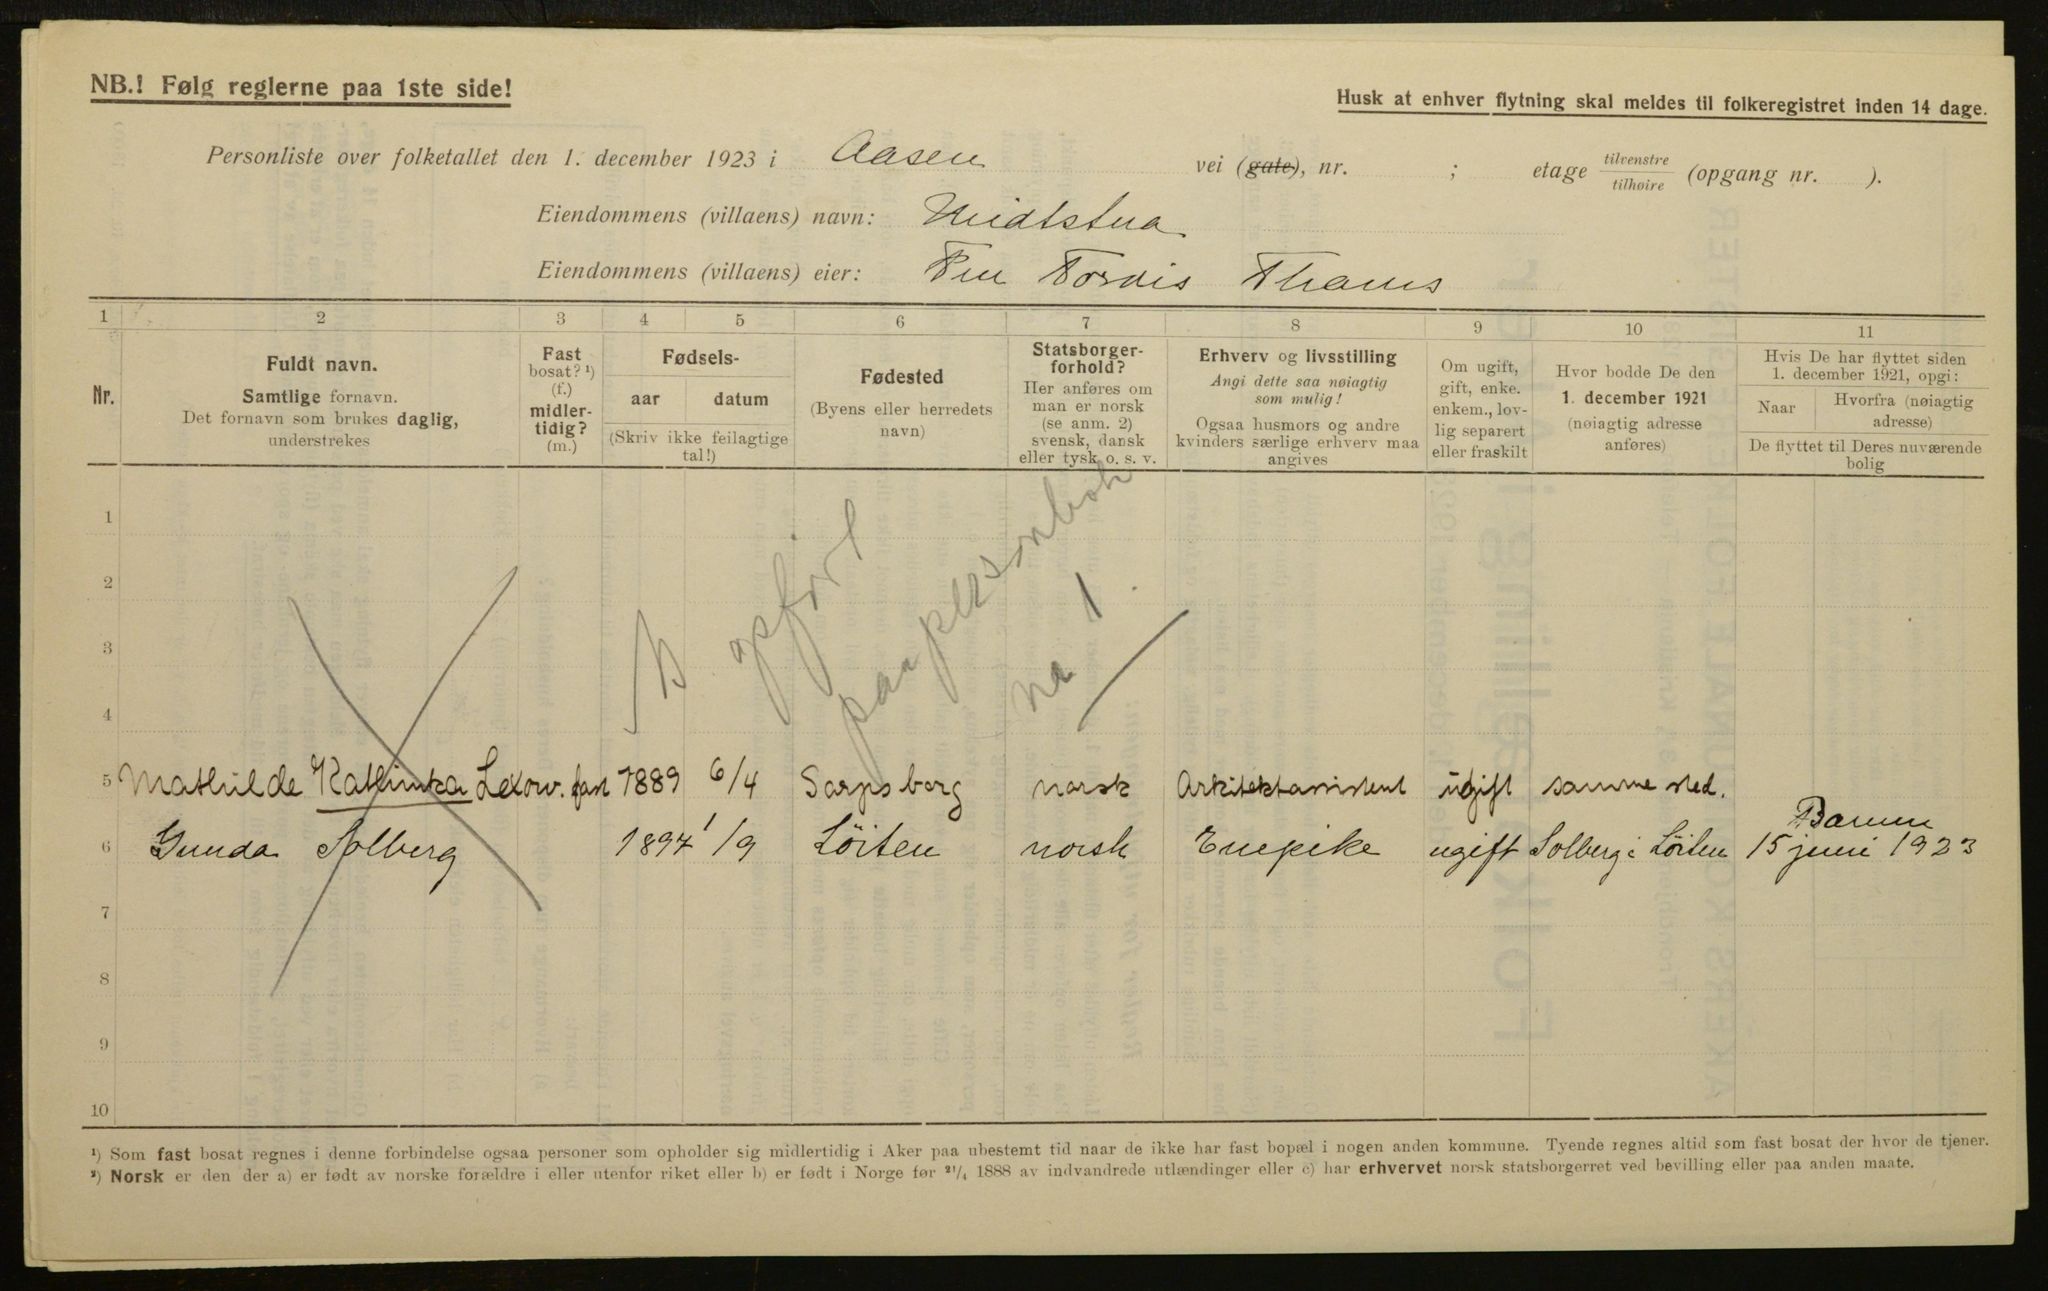 NB.! Følg reglerne paa 1ste side!
Husk at enhver flytning skal meldes til folkeregistret inden 14 dage.
Personliste over folketallet den 1. december 1923 i Aasen vei (gate), nr. ; etage tilvenstre tilhøire (opgang nr. ).
Eiendommens (villaens) navn: Midtstua
Eiendommens (villaens) eier: Fru Tordis Thams
1 2 3 4 5 6 7 8 9 10 11
Nr.
Fuldt navn.
Samtlige fornavn.
Det fornavn som brukes daglig,
understrekes
Fast
bosat? ¹)
(f.)
midler-
tidig?
(m.)
Fødsels-
aar datum
(Skriv ikke feilagtige
tal!)
Fødested
(Byens eller herredets
navn)
Statsborger-
forhold?
Her anføres om
man er norsk
(se anm. 2)
svensk, dansk
eller tysk o. s. v.
Erhverv og livsstilling
Angi dette saa nøiagtig
som mulig!
Ogsaa husmors og andre
kvinders særlige erhverv maa
angives
Om ugift,
gift, enke.
enkem., lov-
lig separert
eller fraskilt
Hvor bodde De den
1. december 1921
(nøiagtig adresse
anføres)
Hvis De har flyttet siden
1. december 1921, opgi:
Naar
Hvorfra (nøiagtig
adresse)
De flyttet til Deres nuværende
bolig
1
2
3
4
opført
paa personbok
na 1
5 Mathilde Kathinka Lexow. fast 1889 6/4 Sarpsborg norsk Arkitektassistent ugift samme sted.
6 Gunda Solberg 1894 1/9 Löiten norsk Enepike ugift Solberg i Löiten 15 juni 1923
Bærum
7
8
9
10
¹) Som fast bosat regnes i denne forbindelse ogsaa personer som opholder sig midlertidig i Aker paa ubestemt tid naar de ikke har fast bopæl i nogen anden kommune. Tyende regnes altid som fast bosat der hvor de tjener.
²) Norsk er den der a) er født av norske forældre i eller utenfor riket eller b) er født i Norge før ²¹/₄ 1888 av indvandrede utlændinger eller c) har erhvervet norsk statsborgerret ved bevilling eller paa anden maate.